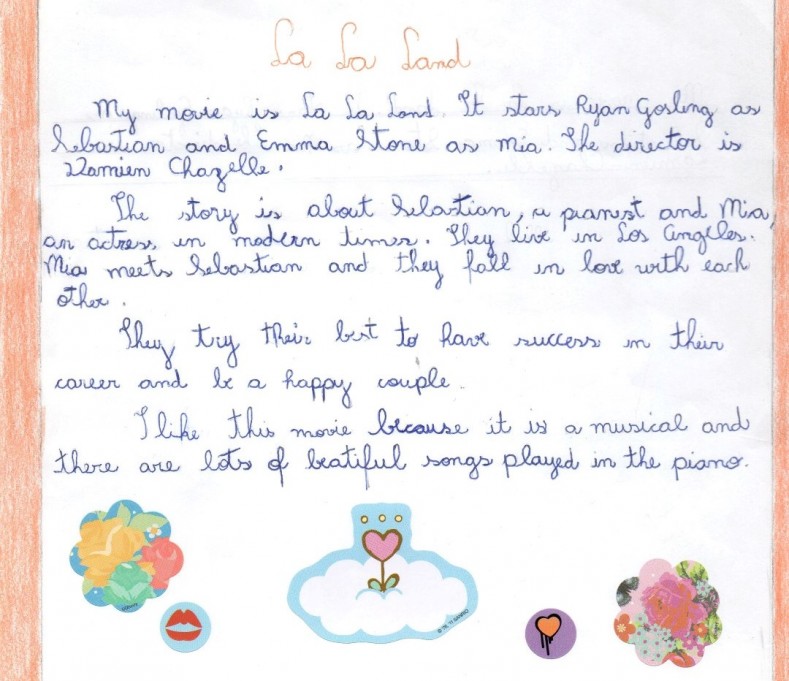 La La Land
My movie is La La Land. It stars Ryan Gosling as
Sebastian and Emma Stone as Mia. The director is
Damien Chazelle.
The story is about Sebastian, a pianist and Mia,
an actress in modern times. They live in Los Angeles.
Mia meets Sebastian and they fall in love with each
other.
They try their best to have success in their
career and be a happy couple.
I like this movie because it is a musical and
there are lots of beatiful songs played in the piano.